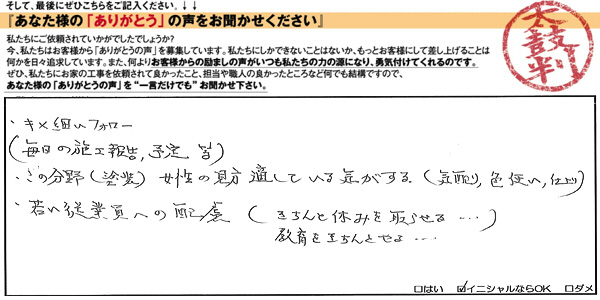 そして、最後にぜひこちらをご記入ください。↓↓
『あなた様の「ありがとう」の声をお聞かせください』
私たちにご依頼されていかがでしたでしょうか?
今、私たちはお客様から「ありがとうの声」を募集しています。私たちにしかできないことはないか、もっとお客様にして差し上げることは
何かを日々追求しています。また、何よりお客様からの励ましの声がいつも私たちの力の源になり、勇気付けてくれるのです。
ぜひ、私たちにお家の工事を依頼されて良かったこと、担当や職人の良かったところなど何でも結構ですので、
あなた様の「ありがとうの声」を“一言だけでも”お聞かせ下さい。
太鼓判
・キメ細いフォロー
(毎日の施工報告,予定 等)
・この分野(塗装) 女性の方適している気がする。(気配り,色使い,仕切り)
・若い従業員への配慮 (きちんと休みを取らせる…)
教育をきちんとやる…
□はい ☑イニシャルならOK □ダメ